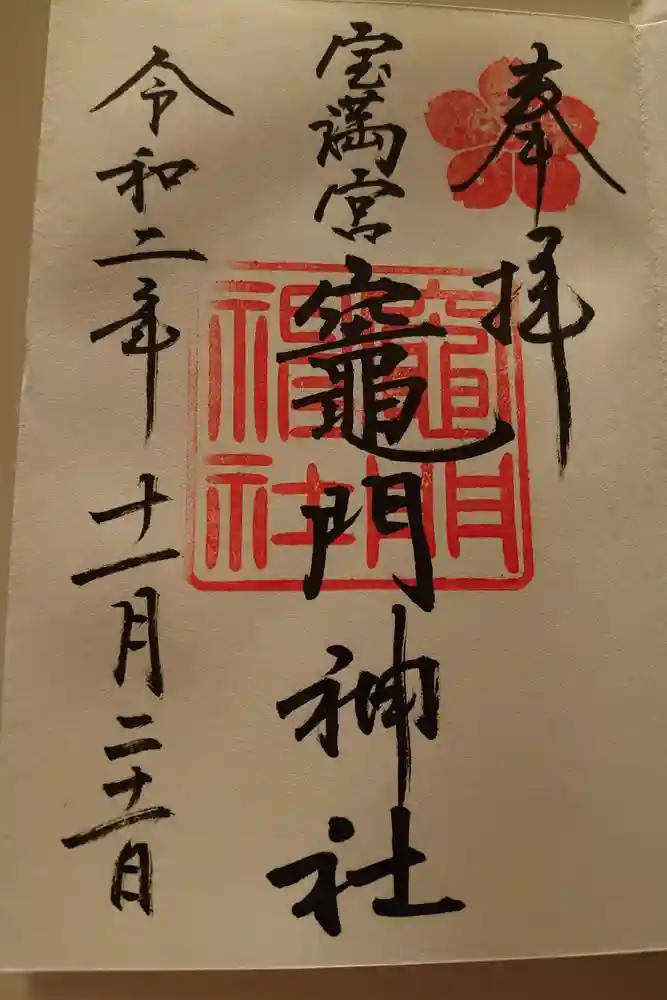 奉拝
宝満宮
竈門神社
竈門神社
令和二年十一月二十一日